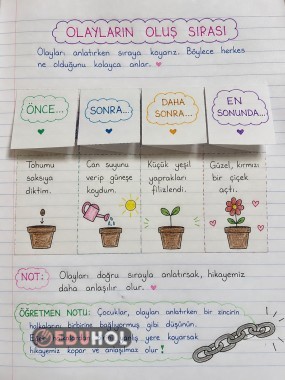 OLAYLARIN OLUŞ SIRASI
Olayları anlatırken sıraya koyarız. Böylece herkes
ne olduğunu kolayca anlar.
ÖNCE...
SONRA...
DAHA
SONRA...
EN
SONUNDA...
Tohumu
saksıya
diktim.
Can suyunu
verip güneşe
koydum.
Küçük yeşil
yaprakları
filizlendi.
Güzel, kırmızı
bir çiçek
açtı.
NOT: Olayları doğru sırayla anlatırsak, hikayemiz
daha anlaşılır olur.
ÖĞRETMEN NOTU: Çocuklar, olayları anlatırken bir zincirin
halkalarını birbirine bağlıyormuş gibi düşünün.
EDUHOL
yere koyarsak
hikayemiz kopar ve anlaşılmaz olur!